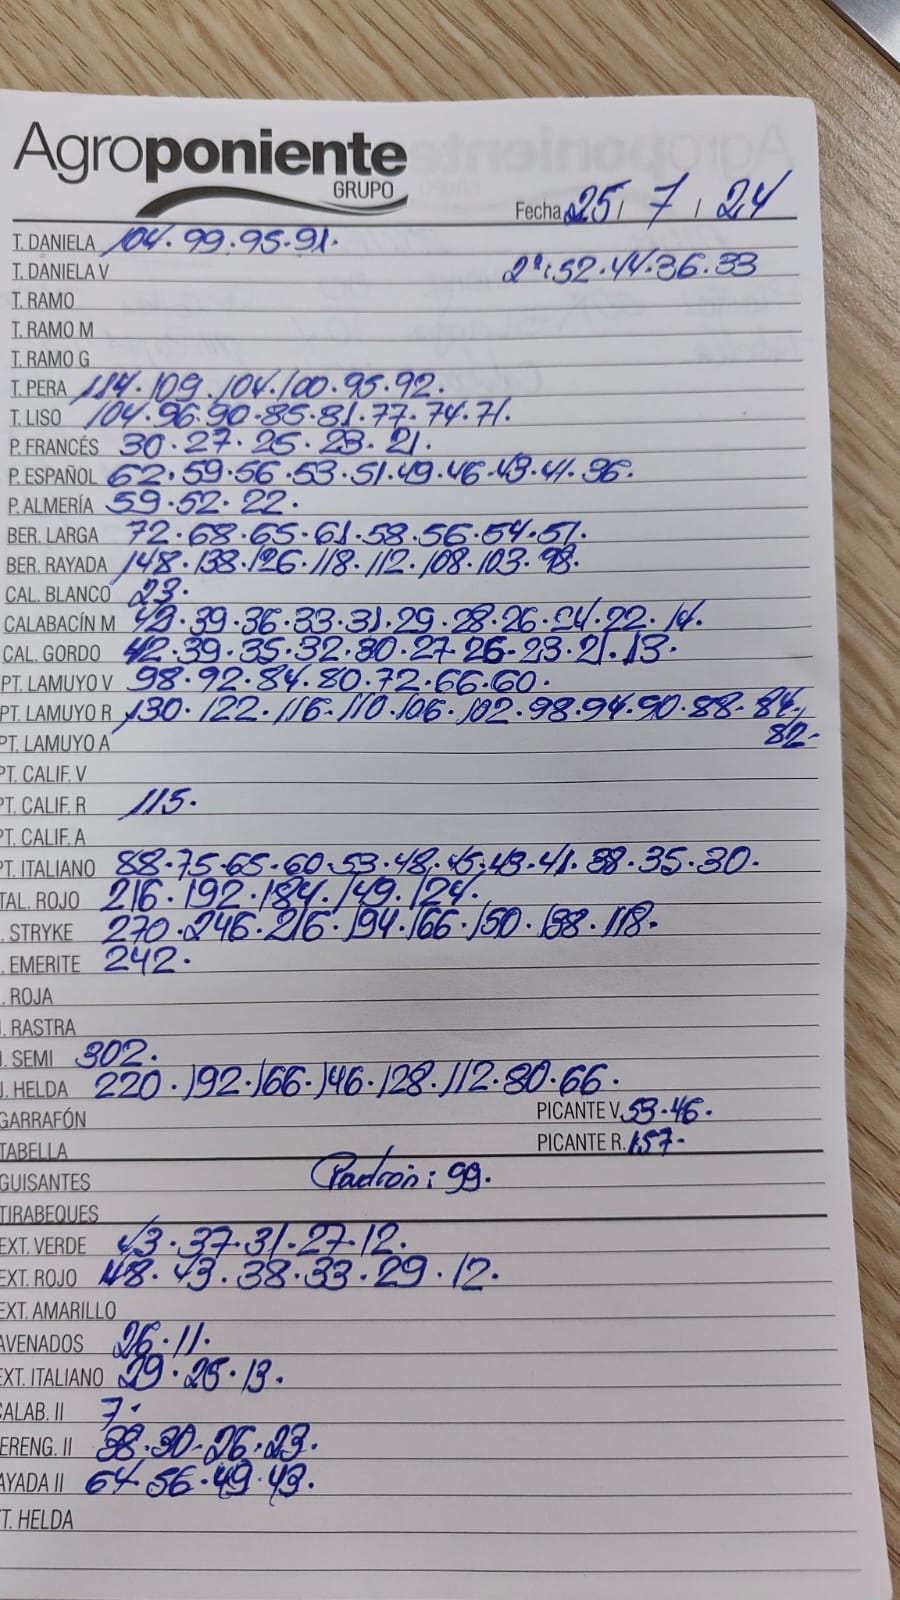 Agroponiente
GRUPO
Fecha 25 / 7 / 24
T. DANIELA 104. 99. 95. 91.
T. DANIELA V 2ª: 52. 44. 36. 33
T. RAMO
T. RAMO M
T. RAMO G
T. PERA 114. 109. 104. 100. 95. 92.
T. LISO 104. 96. 90. 85. 81. 77. 74. 71.
P. FRANCÉS 30. 27. 25. 23. 21.
P. ESPAÑOL 62. 59. 56. 53. 51. 49. 46. 43. 41. 36.
P. ALMERÍA 59. 52. 22.
BER. LARGA 72. 68. 65. 61. 58. 56. 54. 51.
BER. RAYADA 148. 138. 126. 118. 112. 108. 103. 98.
CAL. BLANCO 23.
CALABACÍN M 39. 36. 33. 31. 29. 28. 26. 24. 22. 14.
CAL. GORDO 42. 39. 35. 32. 30. 27. 26. 23. 21. 13.
PT. LAMUYO V 98. 92. 84. 80. 72. 66. 60.
PT. LAMUYO R 130. 122. 116. 110. 106. 102. 98. 94. 90. 88. 84.
PT. LAMUYO A 82.
PT. CALIF. V
PT. CALIF. R 115.
PT. CALIF. A
PT. ITALIANO 88. 75. 65. 60. 53. 48. 45. 43. 41. 38. 35. 30.
TAL. ROJO 216. 192. 184. 149. 124.
. STRYKE 270. 246. 216. 194. 166. 150. 138. 118.
. EMERITE 242.
. ROJA
J. RASTRA
J. SEMI 302.
J. HELDA 220. 192. 166. 146. 128. 112. 80. 66.
GARRAFÓN PICANTE V. 53. 46.
TABELLA PICANTE R. 157.
GUISANTES Padrón: 99.
TIRABEQUES
EXT. VERDE 43. 37. 31. 27. 12.
EXT. ROJO 48. 43. 38. 33. 29. 12.
EXT. AMARILLO
AVENADOS 26. 11.
EXT. ITALIANO 29. 25. 13.
CALAB. II 7.
ERENG. II 38. 30. 26. 23.
AYADA II 64. 56. 49. 43.
T. HELDA